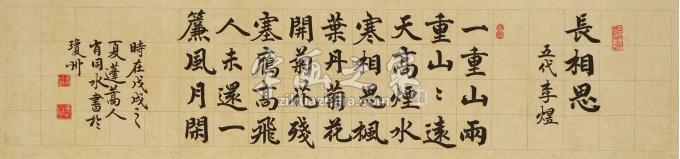 長相思
五代李煜
一重山兩
重山〻遠
天高煙水
寒相思楓
葉丹菊花
開菊花殘
塞鴈高飛
人未還一
簾風月閑
時在戊戌之
夏蓬蒿人
肖同水書於
瓊州